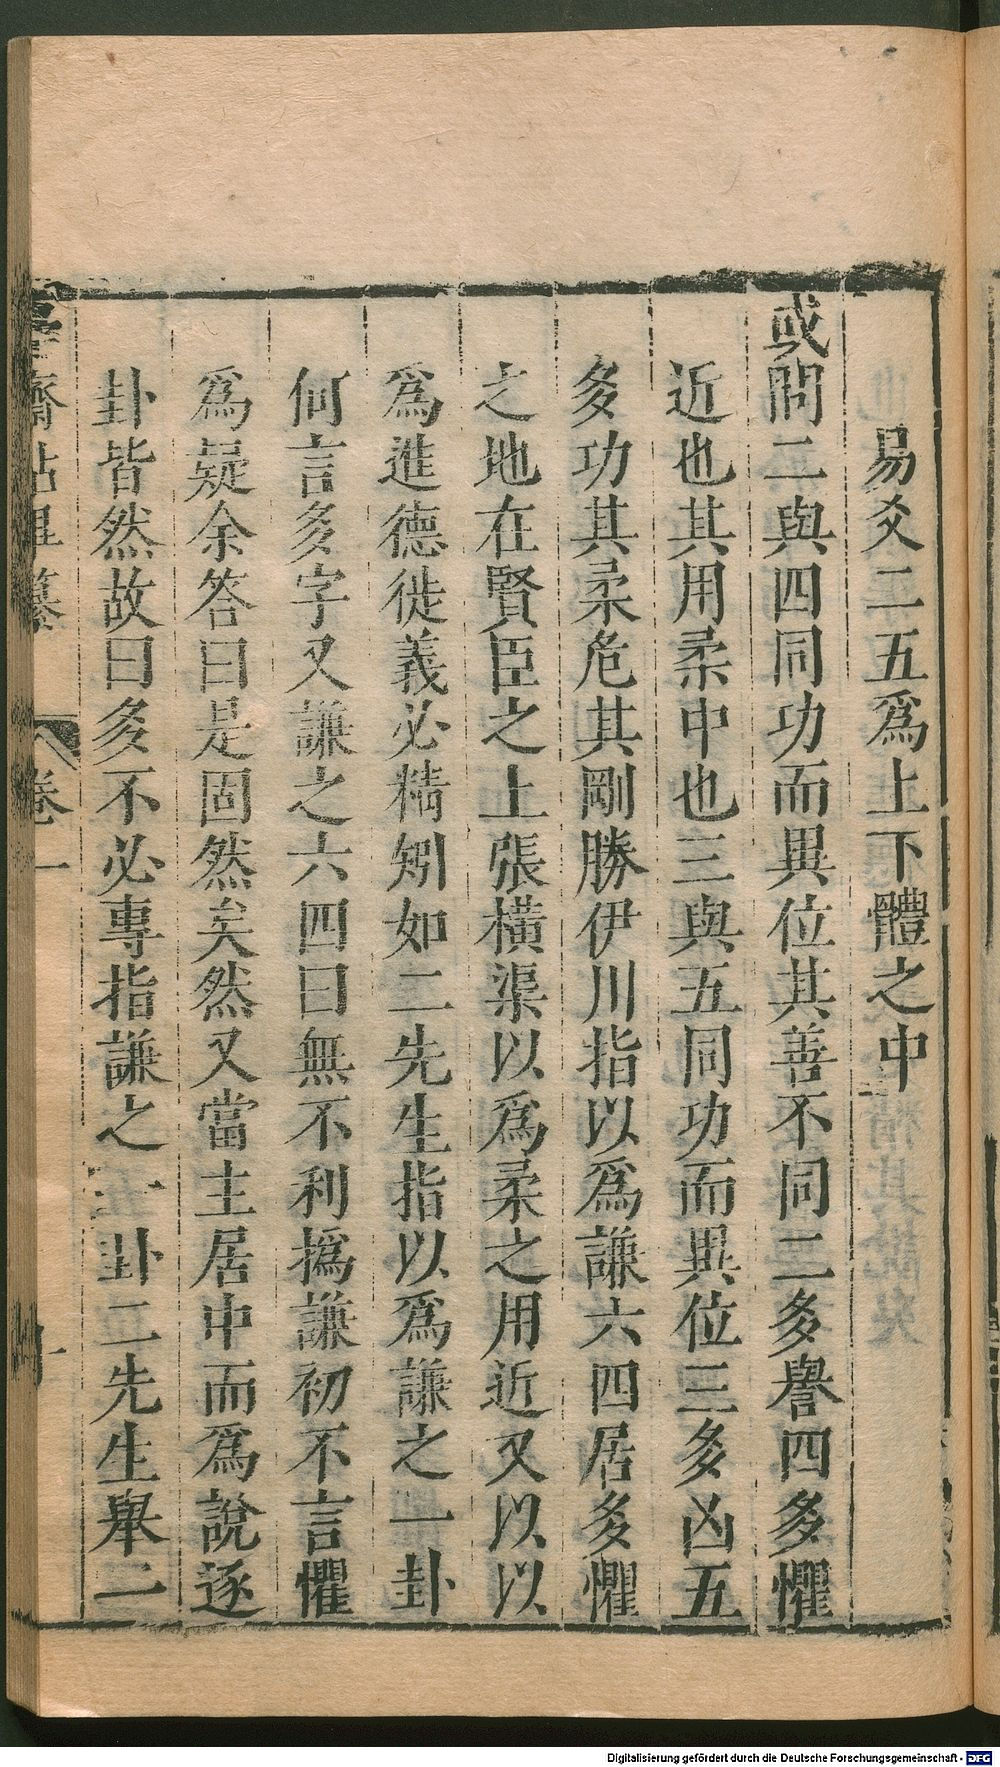 易爻二五爲上下體之中
或問二與四同功而異位其善不同二多譽四多懼
近也其用柔中也三與五同功而異位三多凶五
多功其柔危其剛勝伊川指以爲謙六四居多懼
之地在賢臣之上張橫渠以爲柔之用近又以以
爲進德徙義必精矧如二先生指以爲謙之一卦
何言多字又謙之六四曰無不利撝謙初不言懼
爲疑余答曰是固然矣然又當主居中而爲說逐
卦皆然故曰多不必專指謙之一卦二先生舉二
齋佔畢纂
卷一
Digitalisierung gefördert durch die Deutsche Forschungsgemeinschaft - DFG